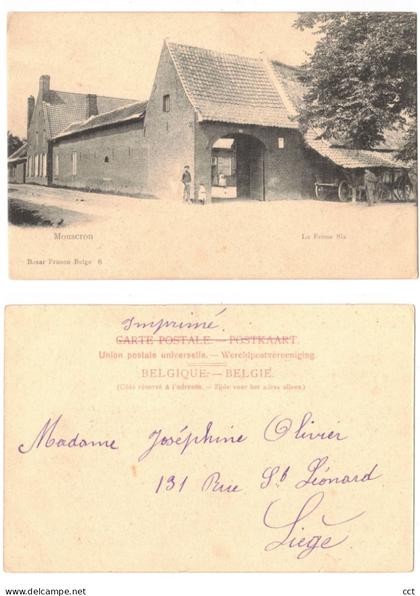 Mouscron
La Ferme Six
Bazar Franco Belge 6
Imprimé.
CARTE POSTALE. — POSTKAART.
Union postale universelle. — Wereldpostvereeniging.
BELGIQUE. — BELGIË.
(Côté réservé à l'adresse. — Zijde voor het adres alleen.)
Madame Joséphine Olivier
131 Rue St Léonard
Liége
cct